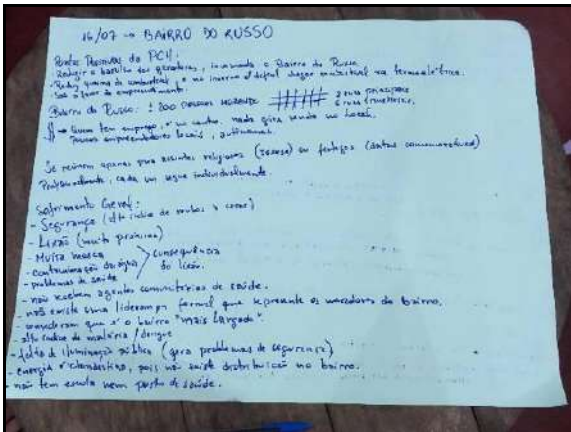 16/07 → BAIRRO DO RUSSO
Pontos Positivos da PCH:
- Reduzir o barulho dos geradores, incomodando o Bairro do Russo.
- Reduz queima de combustível, e no inverno é difícil chegar combustível na termoelétrica.
- São a favor do empreendimento.
Bairro do Russo: ± 200 pessoas 2 ruas principais
6 ruas
$ → Quem tem emprego, é no centro. nada gira renda no local.
Poucos empreendedores locais, autônomos.
Se reúnem apenas para assuntos religiosos (igreja) ou festejos (datas comemorativas)
Profissionalmente, cada um segue individualmente.
Sofrimento Geral:
- Segurança (alto índice de roubos a casas)
- Lixão (muito próximo)
- Muita mosca
- contaminação da água
- problemas de saúde
consequência do lixão.
- não recebem agentes comunitários de saúde.
- não existe uma liderança formal que represente os moradores do bairro.
- consideram que é o bairro "mais largado".
- alto índice de malária / dengue
- falta de iluminação pública (gera problemas de segurança)
- energia é clandestina, pois não existe distribuição no bairro.
- não tem escola nem posto de saúde.